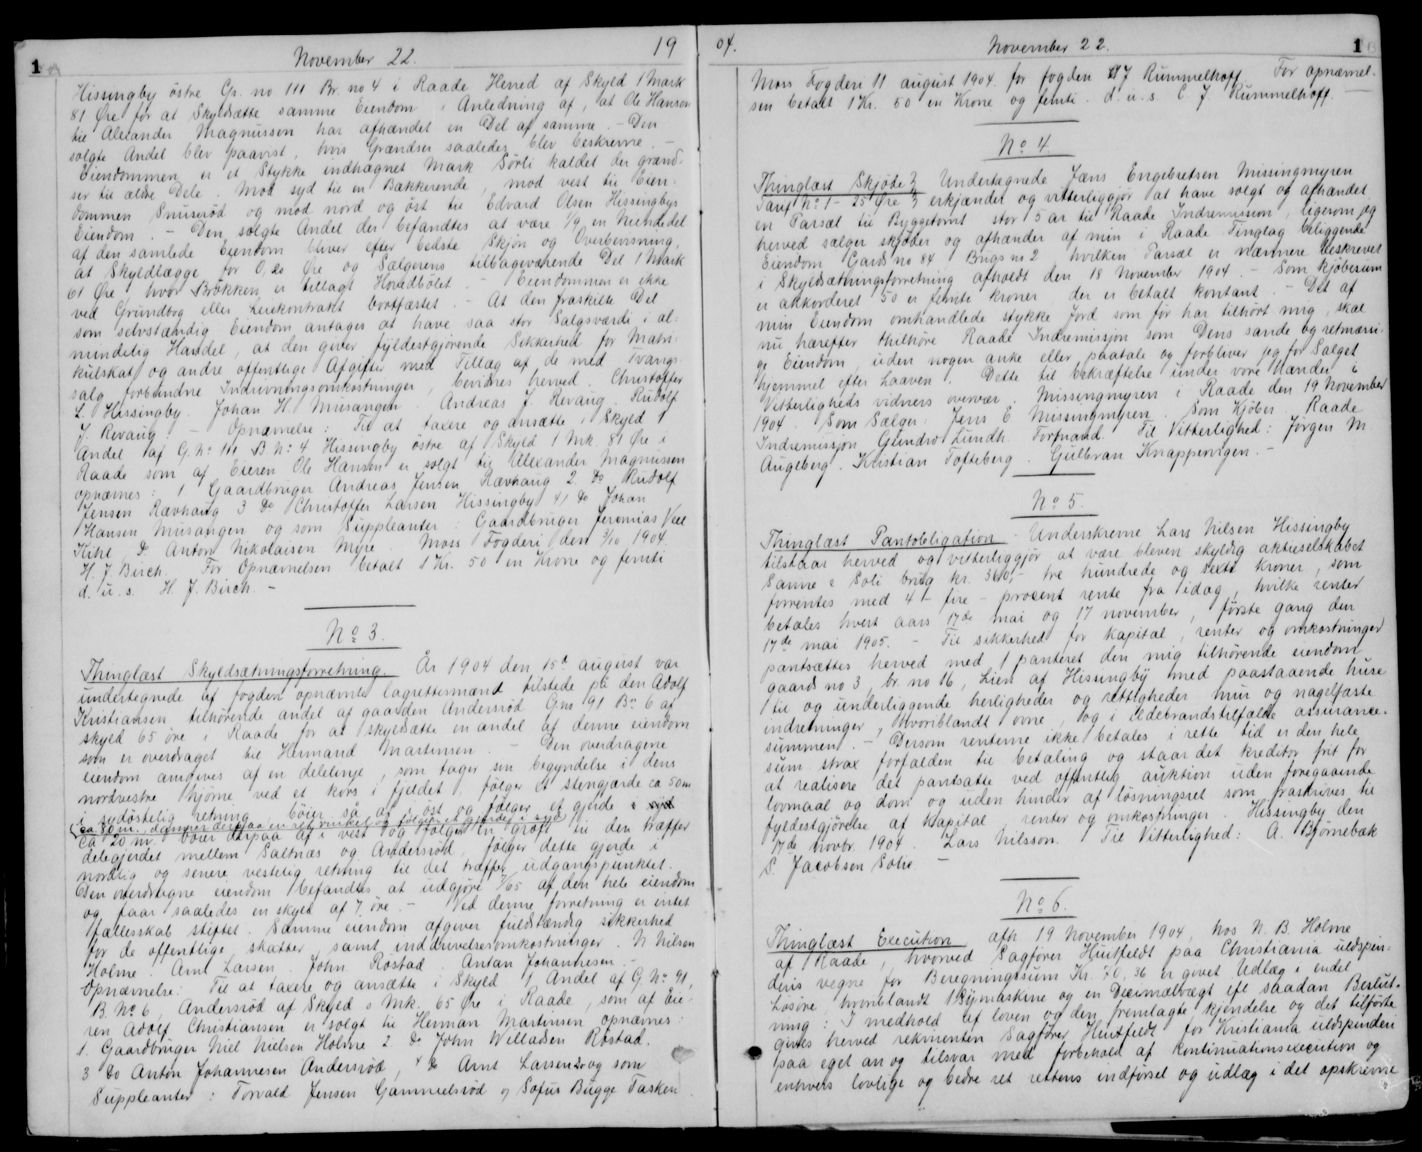 1
November 22.
19
Hissingby östre Gr. no 111 Br. no 4 i Raade Herred af Skyld 1 Mark
81 Øre for at Skyldsætte samme Eiendom i Anledning af, at Ole Hansen
til Alexander Magnussen har afhændet en Del af samme. - Den
solgte Andel blev paavist, hvis Grændser saaledes blev beskrevne. -
Eiendommen er et Stykke indhægnet Mark Sörli kaldet der grænd-
ser til alle Dele. Mod syd til en Bakkerende, mod vest til Eien-
dommen Smiseröd og mod nord og öst til Edvard Olsen Hissingbys
Eiendom. - Den solgte Andel der befandtes at være 1/9 en Niendedel
af den samlede Eiendom bliver efter bedste Skjøn og Overbevisning,
at Skyldlægge for 0,20 Øre og Sælgerens tilbageværende Del 1 Mark
61 Øre hvor Brökken er tillagt Hovedbölet. - Eiendommen er ikke
ved Grundbog eller Leiekontrakt bortfæstet. - At den fraskilte Del
som selvstændig Eiendom antages at have saa stor Salgsværdi i al-
mindelig Handel, at den giver fyldestgjørende Sikkerhed for Matri-
kulskat og andre offentlige Afgifter med Tillæg af de med tvangs-
salg forbundne Inddrivningsomkostninger, bevidnes herved. Christoffer
L. Hissingby. Johan H. Musangen. Andreas J. Revaug. Rudolf
J. Revaug. - Opnævnelse: Til at taxere og ansætte i Skyld 1
Andel af G. No 111 B. No 4 Hissingby östre af Skyld 1 Mk. 81 Øre i
Raade som af Eieren Ole Hansen er solgt til Alexander Magnussen
opnævnes: 1 Gaardbruger Andreas Jensen Rævhaug 2. Do Rudolf
Jensen Rævhaug 3 Do Christoffer Larsen Hissingby 4/ Do Johan
Hansen Musangen og som Suppleanter: Gaardbruger Jeremias Veel
Kihl, Do Anton Nikolaisen Myre. Moss Fogderi den 3/10 1904.
H. J. Birch. For Opnævnelsen betalt 1 Kr. 50 en Krone og femti
d. u. s. H. J. Birch. -
No 3.
Thinglæst Skyldsætningsforretning. År 1904 den 15de august var
undertegnede af fogden opnævnte lagrettemænd tilstede på den Adolf
Kristiansen tilhörende andel af gaarden Anderöd G.no 91 B.no 6 af
skyld 65 öre i Raade for at skyldsætte en andel af denne eiendom
som er overdraget til Hermand Martinsen. - Den overdragne
eiendom angives af en delelinje, som tager sin begyndelse i dens
nordvestre hjörne ved et kors i fjeldet, fölger et stengjærde ca 50 m
i sydöstlig retning, böier så af i öst og fölger et gjerde
ca. 80 m., danner derpaa en ret vinkel og fölger et gjærde i syd
ca 20 m. böier derpaa af i vest og fölger en gröft til den træffer
delegjerdet mellem Saltnæs og Anderöd, fölger dette gjerde i
nordlig og senere vestelig retning til det træffer udgangspunktet.
Den overdragne eiendom befandtes at udgjöre 7/65 af den hele eiendom
og faar saaledes en skyld af 7 öre. - Ved denne forretning er intet
fællesskab stiftet. Samme eiendom afgiver fuldstændig sikkerhed
for de offentlige skatter samt inddrivelsesomkostninger. N. Nilsen
Holme. Arnt Larsen. John Röstad. Antan Johannesen. -
Opnævnelse: Til at taxere og ansætte i Skyld 1 Andel af G. No 91,
B. No 6, Andersröd af Skyld 0 Mk. 65 Øre i Raade, som af Eie-
ren Adolf Christiansen er solgt til Herman Martinsen opnævnes:
1. Gaardbruger Niel Nielsen Holme 2 Do John Willadsen Röstad.
3 Do Anton Johannesen Andersröd, 4 Do Arnt Larsen Do og som
Suppleanter: Torvald Jensen Gammelsröd og Sofus Bugge Tasken
04.
November 22.
1
Moss Fogderi 11 august 1904. for fogden C J Rummelhoff. For opnævnel-
sen betalt 1 Kr. 50 en Krone og femti. d. u. s. C. J. Rummelhoff.
No 4
Thinglæst Skjøde. Undertegnede Jans Engebretsen Missingmyren
erkjænder og vitterliggjör at have solgt og afhændet
en Parsæl til Byggetomt stor 5 ar til Raade Indremission, ligesom jeg
herved sælger skjøder og afhænder af min i Raade Tinglag beliggende
Eiendom Gards no 84 Brugs no 2 hvilken Parsæl er nærmere beskrevet
i Skyldsætningsforretning afholdt den 18 November 1904. - Som kjöbesum
er akkorderet 50 er femti kroner der er betalt kontant. - Det af
min Eiendom omhandlede stykke jord som för har tilhört mig, skal
nu herefter tilhöre Raade Indremissjon som Dens sande og retmæssi-
ge Eiendom, uden nogen anke eller paatale og forbliver jeg for Salget
hjemmel efter Loven. Dette til bekræftelse under vore Hænder i
Vitterligheds vidners overvær. Missingmyren i Raade den 19 November
1904. Som Sælger: Jens E. Missingmyren. Som Kjöber Raade
Indremissjon Gundro Lundh. Formand. Til Vitterlighed: Jörgen M.
Augeberg. Kristian Tofteberg. Gulbran Knappervigen. -
No 5.
Thinglæst Pantobligation. Underskrevne Lars Nilsen Hissingby
tilstaar herved og vitterliggjör at være bleven skyldig aktieselskabet
Sanne & Soli brug kr. 360,- tre hundrede og sexti kroner, som
forrentes med 4 - fire - procent rente fra idag, hvilke renter
betales hvert aars 17de mai og 17 november, første gang den
17de mai 1905. - Til sikkerhed for kapital, renter og omkostninger
pantsættes herved med 1 panteret den mig tilhörende eiendom
gaards no 3, br. no 16, Lien af Hissingby med paastaaende huse
til og underliggende herligheder og rettigheder mur og nagelfaste
indretninger, hvoriblandt ovne, og i ildebrandstilfælde assurance-
summen. - Dersom renterne ikke betales i rette tid er den hele
sum strax forfalden til betaling og staar det kreditor frit for
at realisere det pantsatte ved offentlig auktion uden foregaaende
lovmaal og dom og uden hinder af lösningsret som fraskrives til
fyldestgjörelse af kapital, renter og omkostninger. Hissingby den
17de novbr. 1904. Lars Nilsson. Til Vitterlighed: A. Bjørnebæk
S. Jacobsen Solie. -
No 6.
Thinglæst Execution afh 19 November 1904, hos N. B. Holme
af Raade, hvorved Sagförer Huitfeldt paa Christiania uldspin-
deris vegne for Beregningssum Kr. 70,36 er givet Udlæg i endel
Løsöre, hvoriblandt 1 Symaskine og en Decimalvægt efl saadan Beslut-
ning: I medhold af loven og den fremlagte kjendelse og det tilförte
gives herved rekvirenten Sagförer Huitfeldt for Kristiania uldspinderi
paa eget an og tilsvar med forbehold af kontinuationsexecution og
enhvers lovlige og bedre ret rettens indförsel og udlæg i det opskrevne